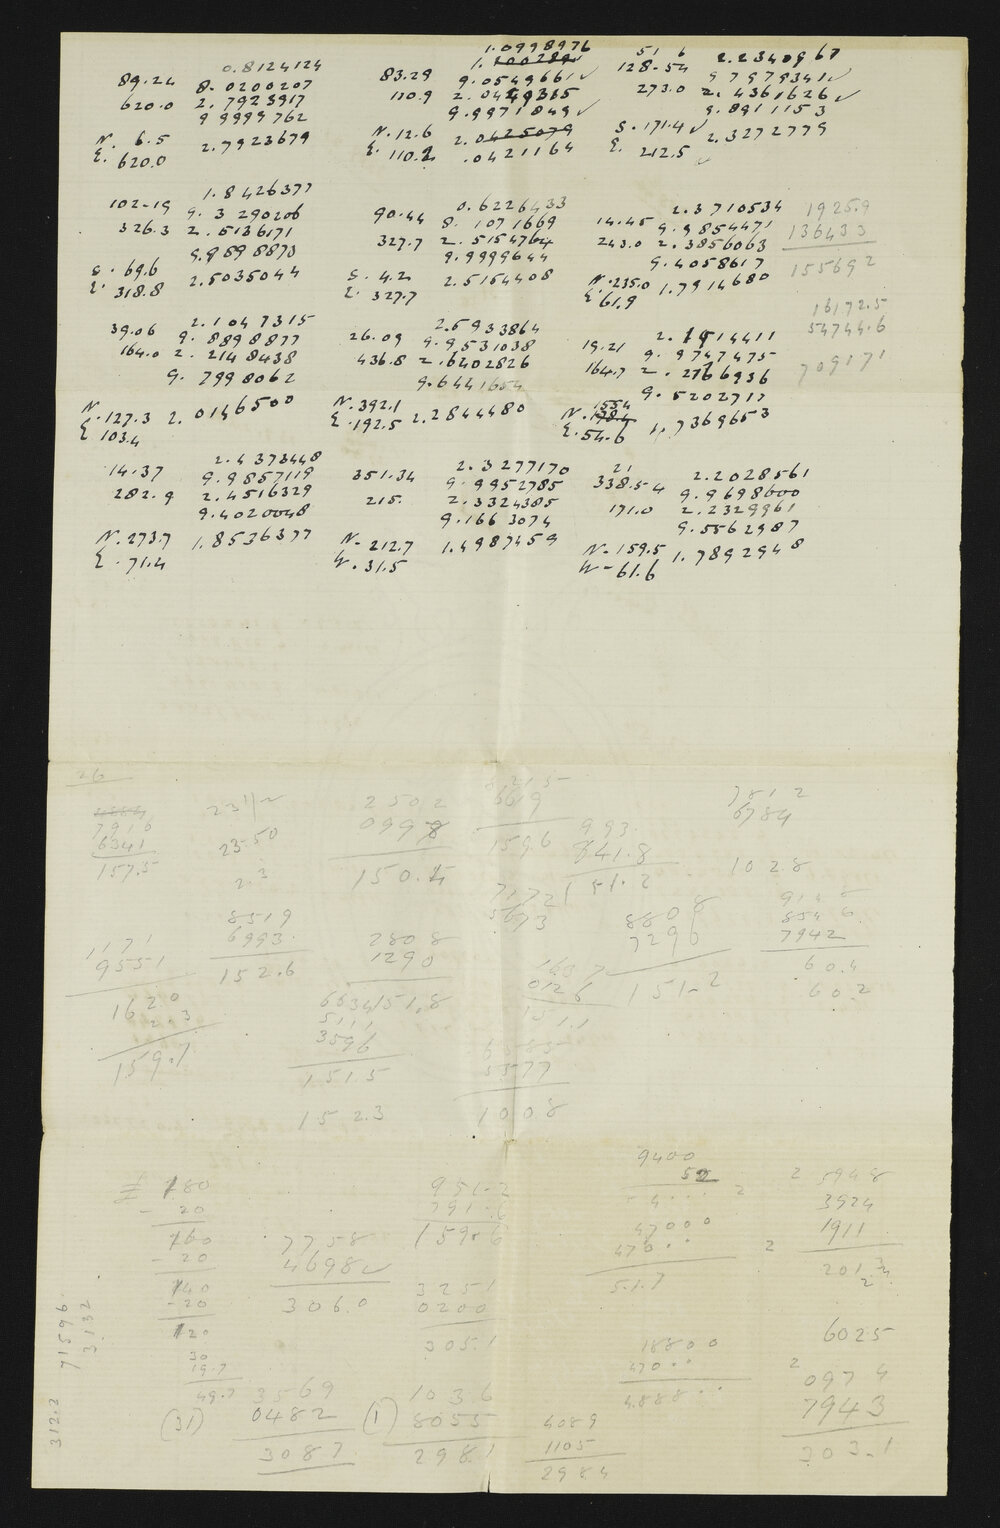 0.8124124
89.24 8.0200207
620.0 2.7923917
9.9999762
N. 6.5 2.7923679
E. 620.0
1.0998976
83.29 9.0549661✓
110.9 2.0449315
9.9971849✓
N. 12.6 2.0425079
E. 110.2 .0421164
51 6 2.2340967
128-54 9.7979341✓
273.0 2.4361626✓
9.8911153
S. 171.4✓ 2.3272779
E. 212.5✓
1.8426377
102-19 9.3290206
326.3 2.5136171
9.9898873
S. 69.6 2.5035044
E. 318.8
0.6226433
90.44 8.1071669
327.7 2.5154764
9.9999644
S. 4.2 2.5154408
E. 327.7
2.3710534
14.45 9.9854471
243.0 2.3856063
9.4058617
N. 235.0 1.7914680
E 61.9
1925.9
136433
155692
16172.5
54744.6
709171
2.1047315
39.06 9.8898877
164.0 2.2148438
9.7998062
N. 127.3 2.0146500
E 103.4
2.5933864
26.09 9.9531038
436.8 2.6402826
9.6441654
N. 392.1 2.2844480
E. 192.5
2.1914411
19.21 9.9747475
164.7 2.2166936
9.5202717
155.4
N. 1.7369653
E. 54.6
2.4373448
14.37 9.9857119
282.9 2.4516329
9.4020048
N. 273.7 1.8536377
E. 71.4
2.3277170
351.34 9.9952785
215. 2.3324385
9.1663074
N- 212.7 1.4987459
W. 31.5
21 2.2028561
338.54 9.9698600
171.0 2.2329961
9.5562987
N- 159.5 1.7892948
W- 61.6
26
7916
6341
157.5
23-50
2.3
2502
0998
150.4
8215
6619
159.6
993
841.8
151.2
7812
6784
1028
1171
9551
1620
2.3
159.7
8519
6993
152.6
2808
1290
151.8
6634
5111
3596
1515
152.3
7172
5673
1637
0126
151.1
6585
5577
1008
8808
7296
151-2
854 6
7942
60.4
60.2
180
- 20
160
- 20
140
- 20
120
30
19.7
49.7
7758
4698✓
306.0
951-2
791.6
159.6
3251
0200
305.1
9400
50
47000
470..
5.1.7
2 5948
3924
2 1911
18800
470..
4.888..
6025
2 0974
7943
303-1
(31) 3569
0482
3087
(1) 1036
8055
298.1
4089
1105
2984
71596
3132
312.2